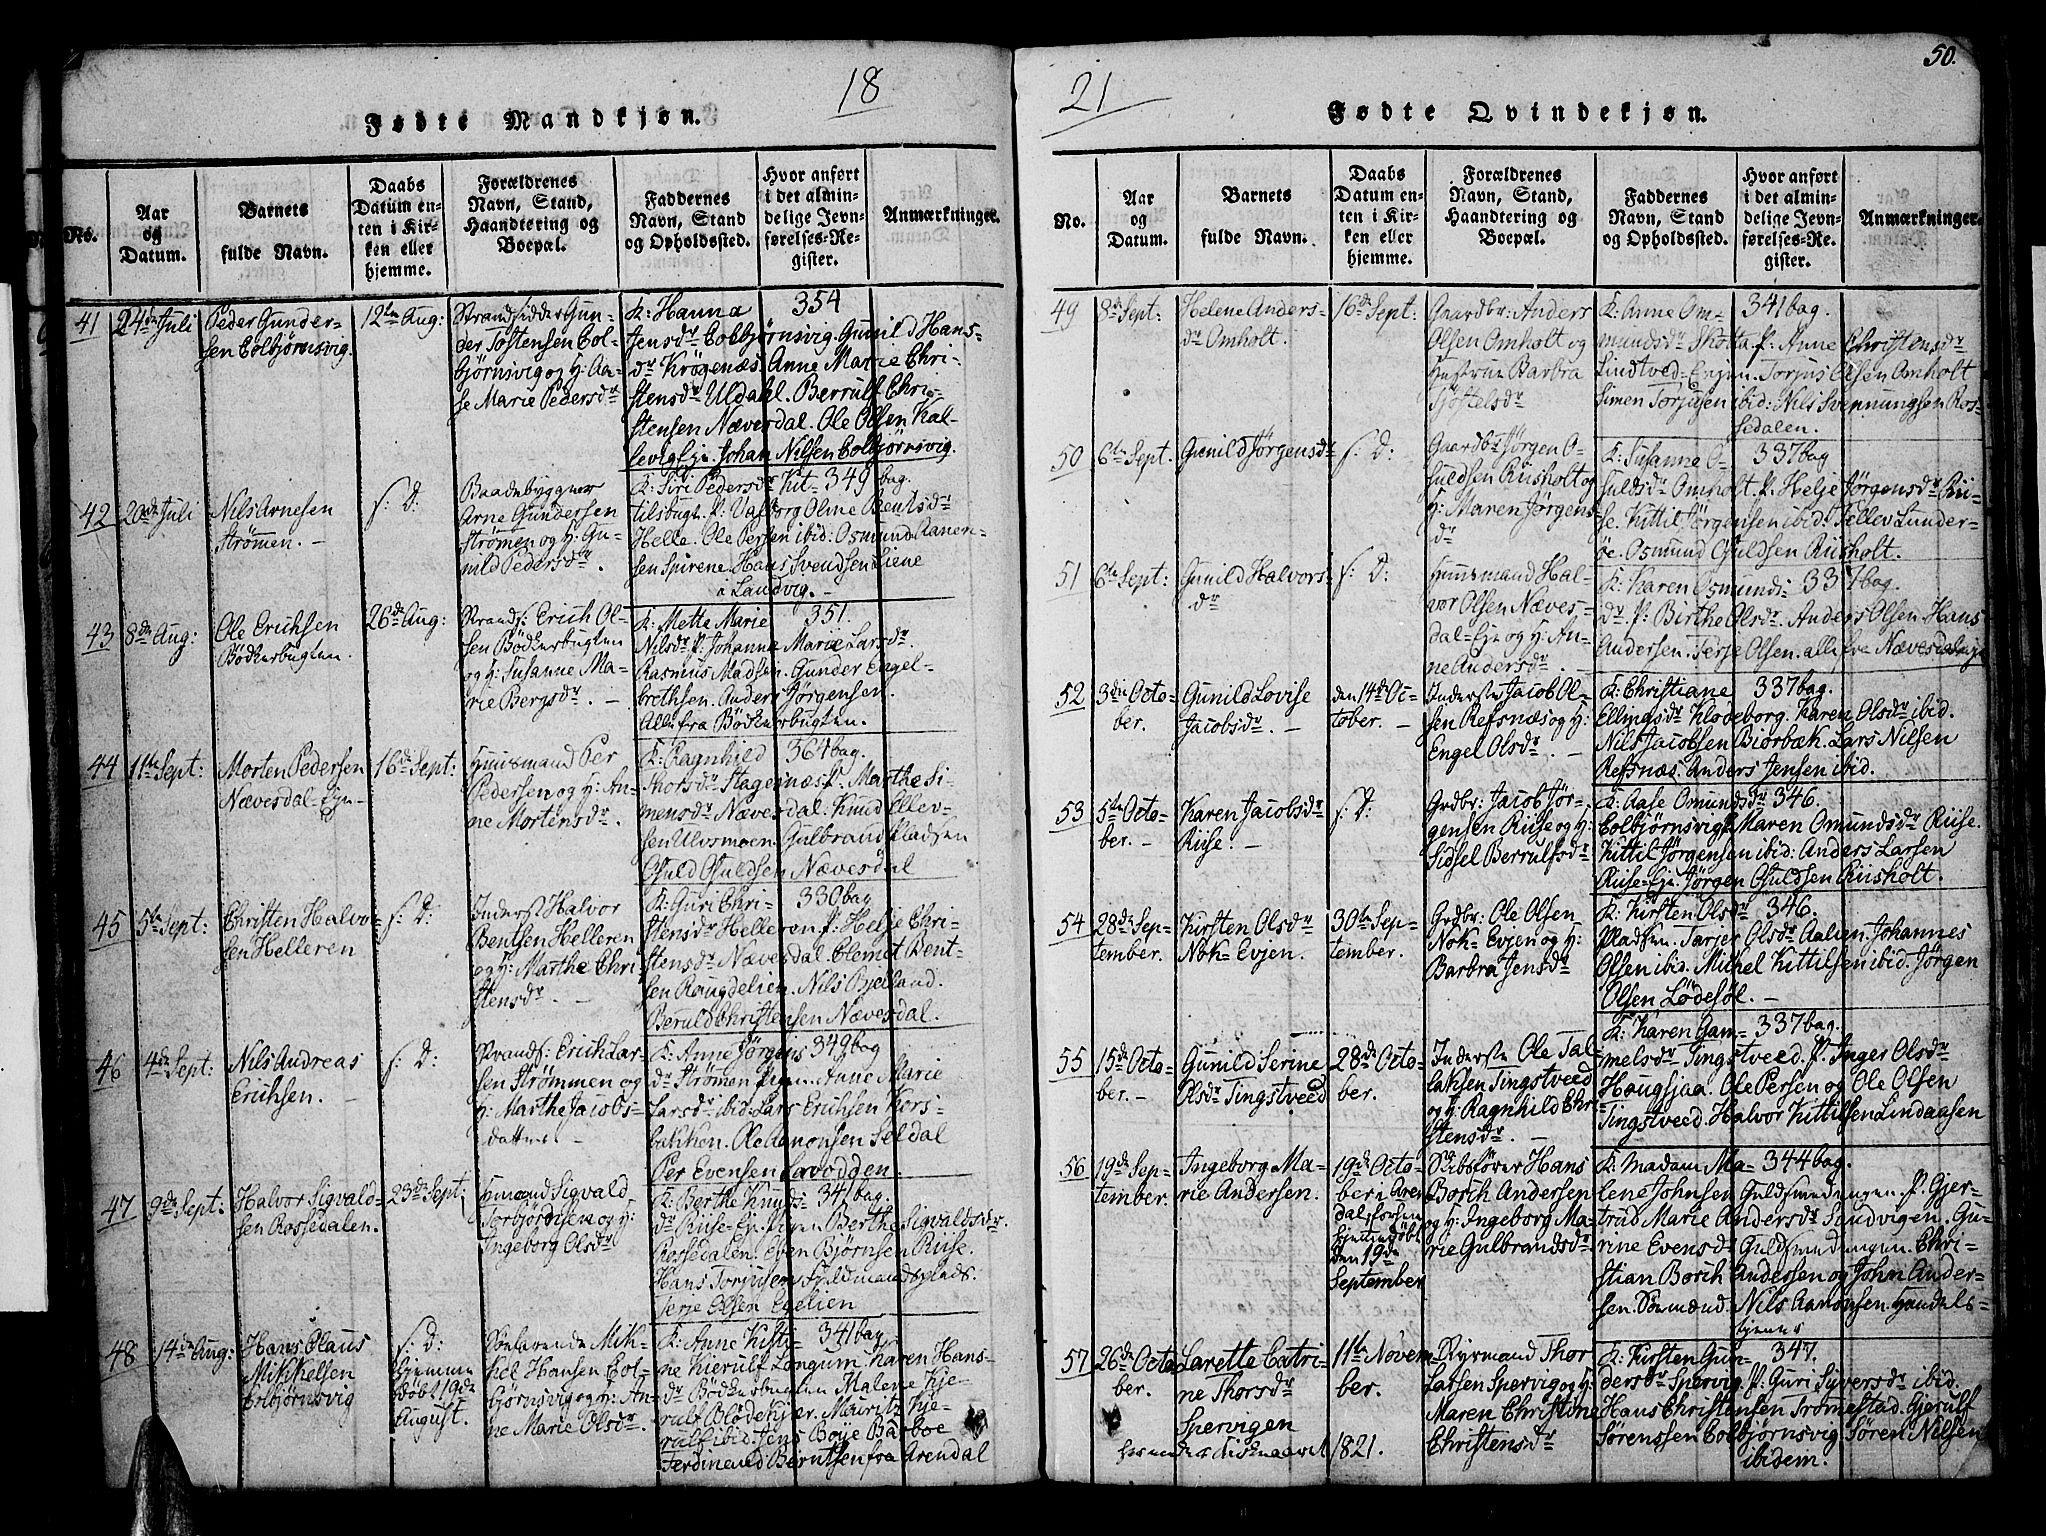 18
Fødte Mandkjøn.
No.
Aar
og
Datum.
Barnets
fulde Navn.
Daabs
Datum en-
ten i Kir-
ken eller
hjemme.
Forældrenes
Navn, Stand,
Haandtering og
Boepæl.
Faddernes
Navn, Stand
og Opholdssted.
Hvor anført
i det almin-
delige Jevn-
førelses-Re-
gister.
Anmærkninger.
41
24de Juli
Peder Gunder-
sen Colbjørnsvig.
12te Aug:
Strandsidder Gun-
der Tostensen Col-
bjørnsvig og H: Aa-
se Marie Pedersdr
K: Hanna 354
Jensdr Colbjörnsvig. Gunild Hans-
dr Krögenæs. Anne Marie Chri-
stensdr Uldahl. Berrulf Chri-
stensen Nævesdal. Ole Olsen Kal-
levig Eje. Johan Nilsen Colbjørnsvig.
42
20de Juli
Nils Arnesen
Strömen. –
s: D:
Baadebygger
Arne Gundersen
Strömen og H: Gu-
nild Pedersdr. –
K: Siri Pedersdr Kit- 349 bag.
tilsbugt. P: Valborg Oline Bentsdr
Helle. Ole Persen ibid: Osmund Aanen-
sen Spirene. Hans Svendsen Liene
i Landvig. –
43
8de Aug:
Ole Erichsen
Bödkerbugten.
26de Aug:
Strands: Erich Ol-
sen Bödkerbugten
og H: Susanne Ma-
rie Bergsdr. –
K: Metta Marie 351.
Nilsdr P: Johanne Marie Larsdr
Rasmus Madsen. Gunder Engel-
brethsen. Anders Jörgensen.
Alle fra Bödkerbugten.
44
11te Sept:
Morten Pedersen
Nævesdal-Eje-
16de Sept:
Huusmand Per
Pedersen og H: An-
ne Mortensdr.
K: Ragnhild 364 bag.
Thorsdr Stagernæs. P: Marthe Si-
mensdr Nævesdal. Knud Ellev-
sen Ulvsmoen. Gulbrand Pladsen
Osuld Osuldsen Nævesdal
45
5te Sept:
Christen Halvo-
sen Helleren
s: D:
Inderst Halvor
Bentsen Helleren
og H: Marthe Chri-
stensdr. –
K: Guri Chri- 330 bag
stensdr Helleren P: Helje Chri-
stensdr Nævesdal. Clemet Bent-
sen Raugdelien. Nils Bjelland.
Beruld Christensen Nævesdal.
46
4de Sept:
Nils Andreas
Erichsen. –
s: D:
Strands: Erich Lar-
sen Strömmen og
H: Marthe Jacobs-
datter –
K: Anne Jörgens 349 bag
dr Strömen Pigen Anne Marie
Larsdr ibid: Lars Erichsen Kors-
bakken. Ole Aanonsen Seldal
Per Evensen Lavodden.
47
9de Sept:
Halvor Sigvald-
sen Rossedalen.
23de Sept.
Huusmand Sigvald
Torbjörnsen og H:
Ingeborg Olsdr
K: Berthe Knuds- 341 bag.
dr Ruse-Eje. Pigen Berthe Sigvaldsdr.
Rossedalen. Even Björnsen Riise.
Hans Torjusen Feldmandsplads.
Terje Olsen Evelien
48
14de Aug:
Hans Claus
Mikkelsen
Colbjörnsvig
s: D:
Hjemme
döbt 19de
August.
Söefarende Mik-
kel Hansen Col-
bjørnsvig og H: An-
ne Marie Olsdr.
K: Anne Kisti- 341 bag
ne Kierulf Longum Karen Hans-
dr Bödkerbugten Malene Kje-
rulf Blödekjær. Mauritz Kje-
rulf ibid: Jens Boye Barboe
Ferdinand Berntsen fra Arendal
50.
21
Fødte Qvindekjøn.
No.
Aar
og
Datum.
Barnets
fulde Navn.
Daabs
Datum en-
ten i Kir-
ken eller
hjemme.
Forældrenes
Navn, Stand,
Haandtering og
Boepæl.
Faddernes
Navn, Stand
og Opholdssted.
Hvor anført
i det almin-
delige Jevn-
førelses-Re-
gister.
Anmærkninger.
49
8de Sept:
Helene Anders-
dr Omholt.
16de Sept:
Gaardbr: Anders
Olsen Omholt og
Hustrue Barbra
Sjöstelsdr
K: Anne Om- 341 bag.
mundsdr Skotta P: Anne Christensdr
Lindtved-Enjen. Torjus Olsen Omholt
Simen Torjusen ibid: Nils Svenningsen Ros-
sedalen.
50
6te Sept.
Gunild Jørgensdr
s: D:
Gaardbr Jørgen O-
suldsen Riisholt og
H: Maren Jörgens-
dr
K: Susanne O- 337 bag
suldsdr Omholt. P: Helje Jørgensdr Rii-
se. Kittil Jörgensen ibid: Tellev Lunder-
öe. Osmund Osuldsen Riisholt.
51
6te Sept:
Gunild Halvors-
dr
s: D:
Huusmand Hal-
vor Olsen Næves-
dal-Eje og H: An-
ne Andersdr –
K: Karen Osmunds: 337 bag.
dr P: Birthe Olsdr. Anders Olsen. Hans
Andersen. Terje Olsen. alle fra Nævesdaleje
52
3die Octo-
ber.
Gunild Lovise
Jacobsdr –
den 14de Oc-
tober. –
Inderste Jacob Ol-
sen Refsnæs og H:
Engel Olsdr. –
K: Christiane 337 bag.
Ellingsdr Klöveborg. Karen Olsdr ibid.
Nils Jacobsen Biorbæk. Lars Nilsen
Refsnæs. Anders Jensen ibid.
53
5te Octo-
ber. –
Karen Jacobsdr
Riise. –
s: D:
Grdbr: Jacob Jör-
gensen Riise og H:
Sidsel Berrulfsdr
K: Aase Omundsdr 346.
Colbjørnsvig. Maren Omundsdr Riise.
Kittil Jörgensen ibid: Anders Larsen
Riise-Eje. Jörgen Osuldsen Riisholt.
54
28de Sep-
tember.
Kirsten Olsdr
Nok-Evjen.
30te Sep-
tember.
Grdbr: Ole Olsen
Nok-Evjen og H:
Barbra Jensdr
K: Kirsten Olsdr 346.
Pladsen. Tarjer Olsdr Aalien. Johannes
Olsen ibid. Michel Kittilsen ibid. Jörgen
Olsen Lödesöl. –
55
15de Octo-
ber. –
Gunild Serine
Olsdr Tingstveed
28de Octo-
ber.
Inderste Ole Tal-
laksen Tingstveed
og H: Ragnhild Chri-
stensdr. –
K: Karen Gam- 337 bag.
melsdr Tingstveed. P: Inger Olsdr
Haugsjaa. Ole Persen og Ole Olsen
Tingstveed. Halvor Kittilsen Lindaasen
56
19de Sep-
tember.
Ingeborg Ma-
rie Andersen.
19de Octo-
ber i Aren-
dal
hjemmedöbt
den 19de
September
Skibsfører Hans
Borch Andersen
og H: Ingeborg Ma-
rie Gulbrandsdr
K: Madam Ma- 344 bag.
lene Johnsen Guldsmedengen. P: Gjer-
trud Marie Andersdr Sandvigen. Gu-
rine Evensdr Guldsmedengen. Chri-
stian Borch Andersen og John Ander-
sen. Sömænd. Nils Aanonsen. Handels-
tjener
57
26de Octo-
ber.
Larette Catri-
ne Thorsdr
Spervigen
11te Novem-
ber.
Styrmand Thor
Larsen Spervig og H:
Maren Christine
Christensdr
K: Kirsten Gun- 347.
dersdr Spervig. P: Guri Syversdr ibid.
Hans Christensen Tromestad. Gjerulf
Sörenssen Colbjørnsvig. Sören Nilsen
ibidem.
1821.